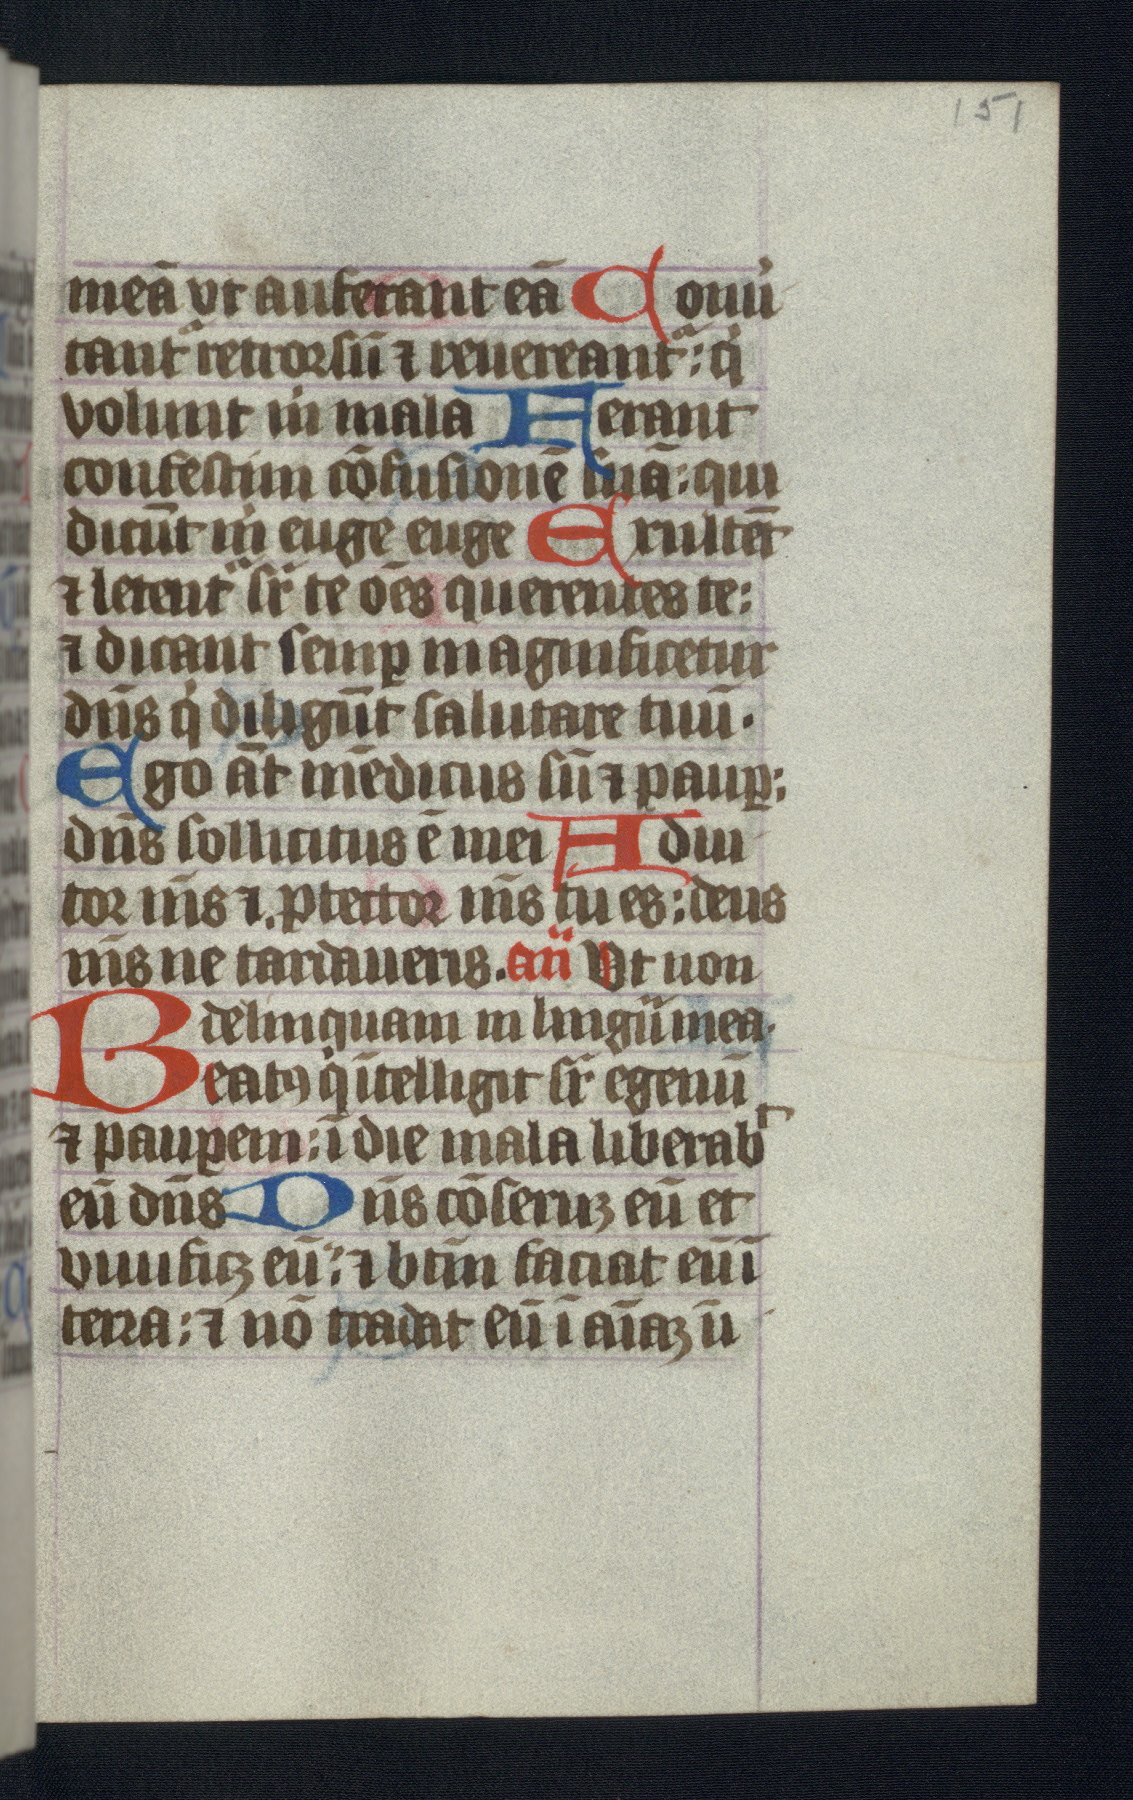 151
meā vt auferant eā Conuͥ
tant᷑ retrorsū ⁊ reuereant᷑: qͥ
volunt mͥ mala Ferant
confestim cōfusionē suā: qui
dicūt mͥ euge euge Exultēt
⁊ letent᷑ sr̄ te oēs querentes te:
⁊ dicant semꝑ magnificetur
dn̄s qͥ diligūt salutare tuū.
Ego āt mēdicus sū ⁊ pauꝑ:
dn̄s sollicitus ē mei Adiu
tor me᷒s ⁊ ꝓtector me᷒s tu es: deus
me᷒s ne tardaueris. an̄ Vt non
delinquam in lingua mea.
Beatꝰ qͥ ītelligit sr̄ egenū
⁊ pauꝑem: ī die mala liberabᵗ
eū dn̄s Dn̄s cōseruꝫ eū et
viuificꝫ eū: ⁊ btm̄ faciat eū ī
terra: ⁊ nō tradat eū ī aīaꝫ ī